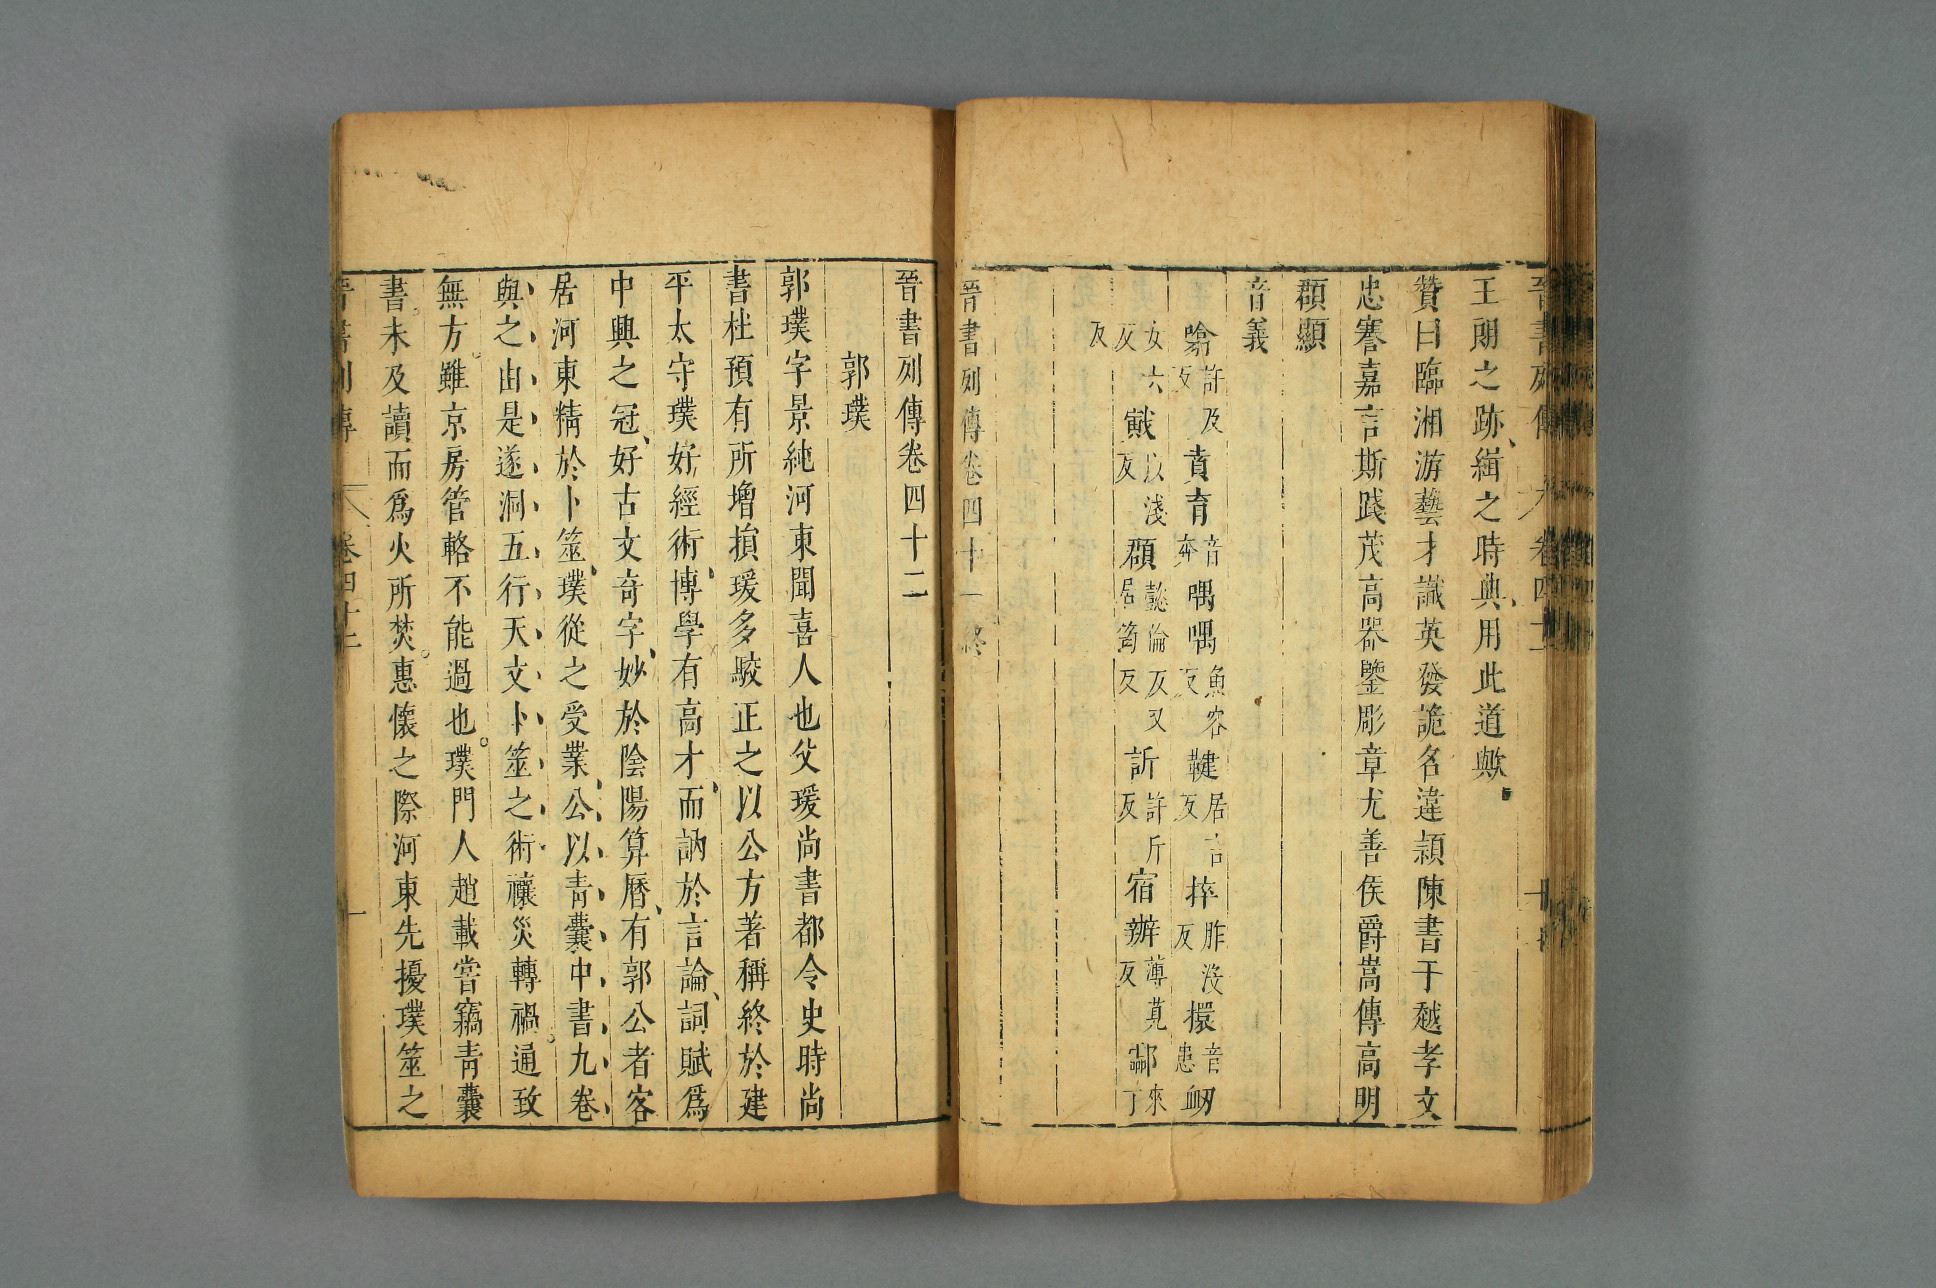 王朗之跡緝之時典用此道歟
贊曰臨湘游藝才識英發詭名違頴陳書于越孝文
忠謇嘉言斯踐茂高器鑒彫章尤善侯爵嵩傳高明
顜顯
音義
噏許及反賁育音奔喁喁魚容反鞬居言反捽胙沒反擐音患衂
女六反戭以淺反顜居筠反訢許斤反宿辦薄莧反酃來丁
反
晉書列傳卷四十一終
晉書列傳卷四十二
郭璞
郭璞字景純河東聞喜人也父瑗尚書都令史時尚
書杜預有所增損瑗多駮正之以公方著稱終於建
平太守璞好經術博學有高才而訥於言論詞賦爲
中興之冠好古文奇字妙於陰陽算曆有郭公者客
居河東精於卜筮璞從之受業公以青囊中書九卷
與之由是遂洞五行天文卜筮之術禳災轉禍通致
無方雖京房管輅不能過也璞門人趙載嘗竊青囊
書未及讀而爲火所焚惠懷之際河東先擾璞筮之
晉書列傳 卷四十二 一